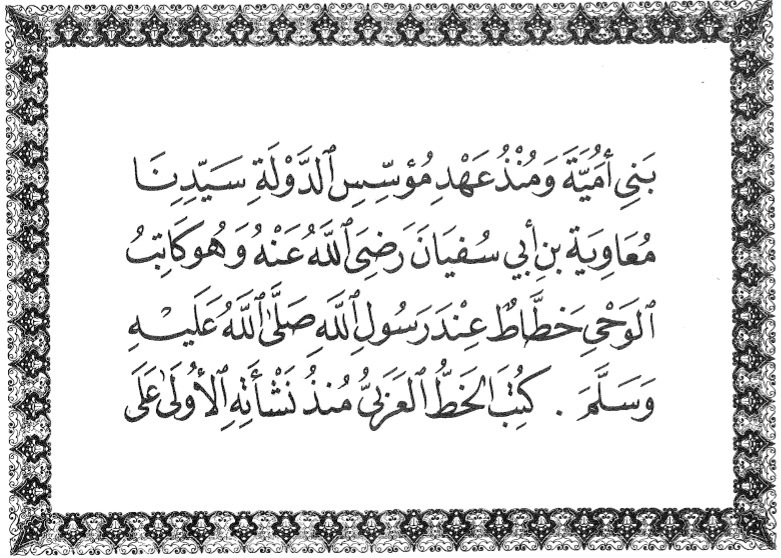 بَنِي أُمَيَّةَ وَمُنْذُ عَهْدِ مُؤَسِّسِ ٱلدَّوْلَةِ سَيِّدِنَا
مُعَاوِيَة بنِ أبي سُفيَانَ رَضِىَ ٱللَّهُ عَنْهُ وَهُوكَاتِبُ
ٱلوَحْيِ خَطَّاطٌ عِنْدَ رَسُولِ ٱللَّهِ صَلَّىٰ ٱللَّهُ عَلَيهِ
وَسَلَّمَ . كُتِبَ الخَطُّ ٱلعَرَبيُّ مُنذُ نَشْأَتِهِ ٱلأُولَىٰ عَلَى